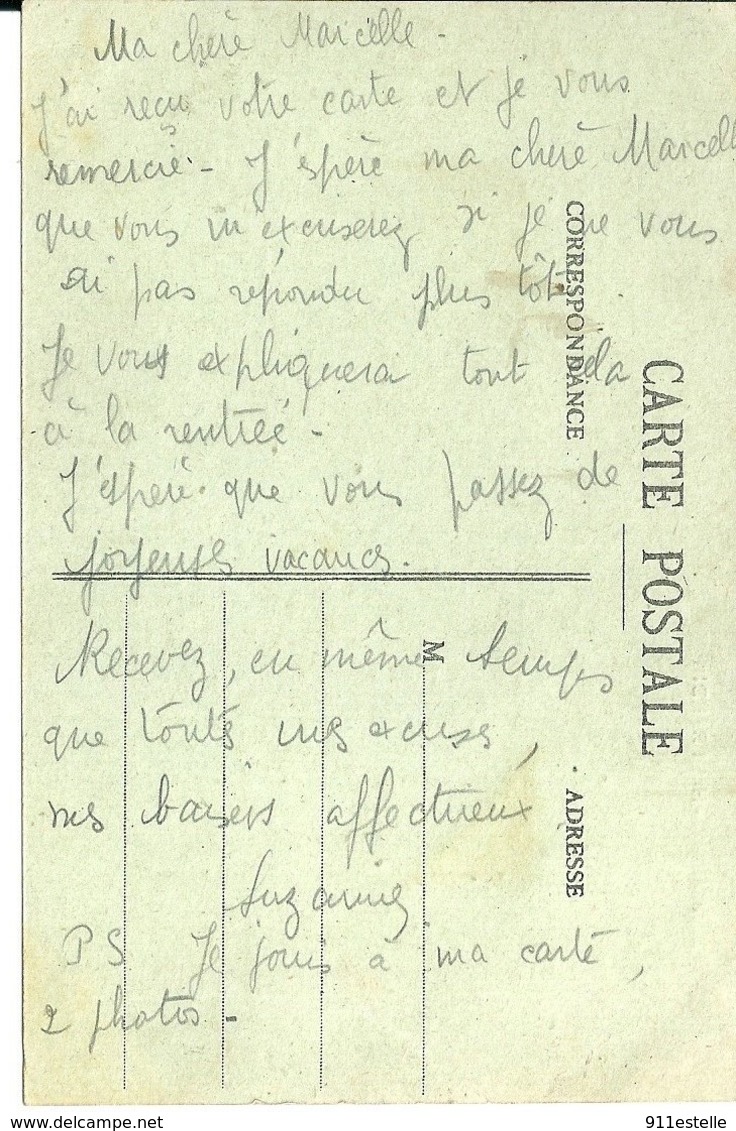 Ma chere Marcelle -
J'ai reçu votre carte et je vous
remercie - J'espère ma chere Marcelle
que vous m'excuserez si je ne vous
ai pas répondu plus tôt.
Je vous expliquerai tout cela
à la rentrée -
J'espère que vous passez de
joyeuses vacances.
Recevez, en même temps
que toutes mes excuses,
mes baisers affectueux
Suzanne
PS Je joins à ma carte,
2 photos -
CORRESPONDANCE
CARTE POSTALE
M
ADRESSE
911estelle